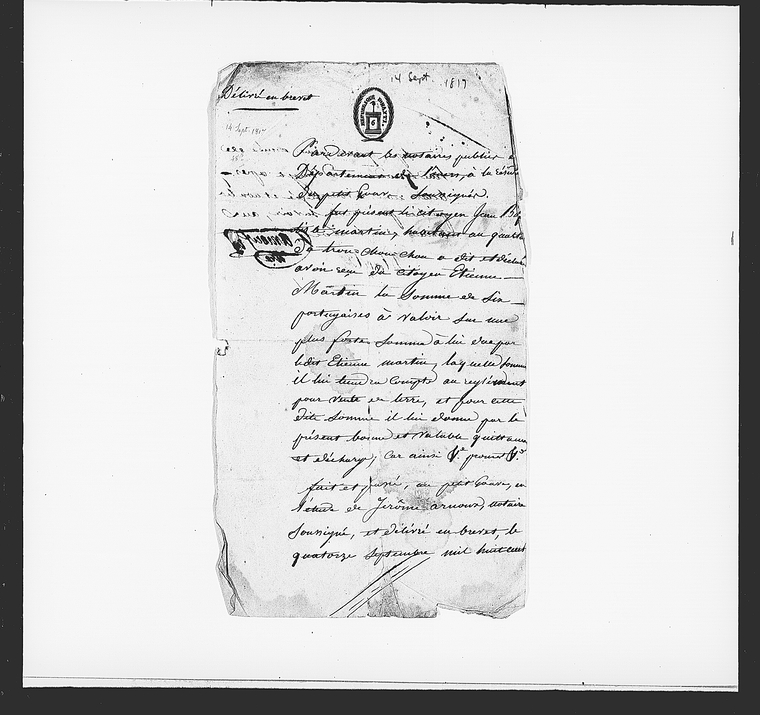 14 Sept. 1817
Délivré en brevet
RÉPUBLIQUE D'HAYTI.
6
14 Sept. 1817
Pardevant les notaires publics
Département de l'ouest, à la résid
du petit Goave Soussignés
fut présent le citoyen Jean Bap
tiste martin, habitant au quartier
du trou chou chou a dit et déclaré
avoir reçu du citoyen Etienne
Martin la Somme de Six
portugaises à valoir Sur une
plus forte Somme à lui due par
ledit Etienne martin, laquelle Somme
il lui tiendra Compte au reglement
pour vente de terre, et pour cette
dite Somme il lui donne par le
présent bonne et valable quittance
et décharge, Car ainsi &.a promet &.a
fait et passé, au petit Goave, en
l'étude de Jérôme arnoux, notaire
Soussigné, et délivré en brevet, le
quatorze Septembre mil huit cent